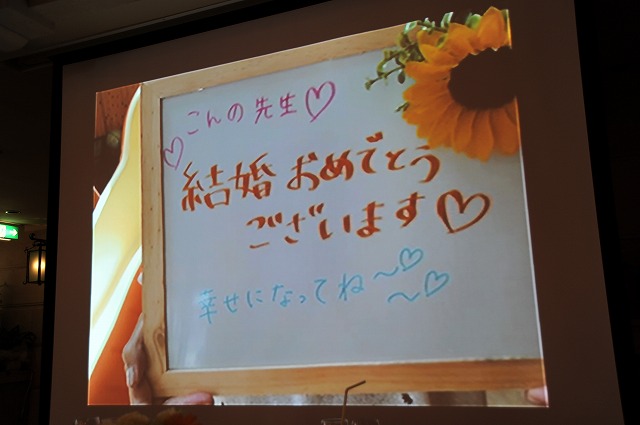 こんの先生♡
♡
結婚おめでとう
ございます♡
幸せになってね〜♡
〜♡